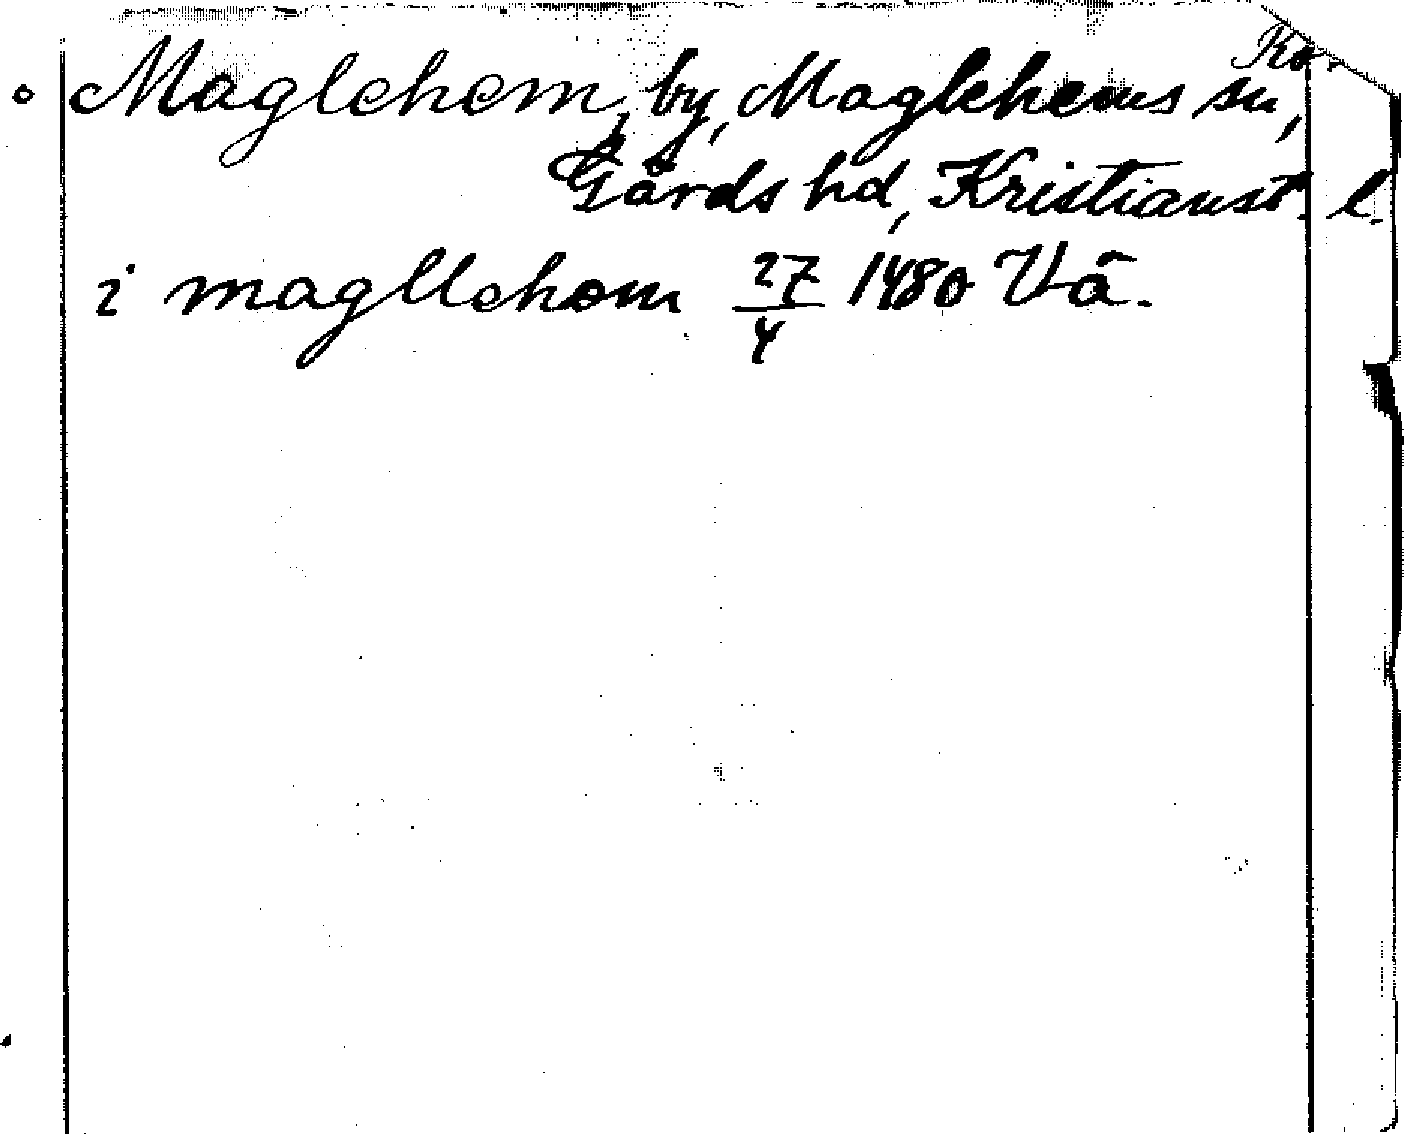 Kr.
Maglehem, by, Maglehems sn,
Gärds hd, Kristianst. l.
i magllehom 27/4 1480 Vä.